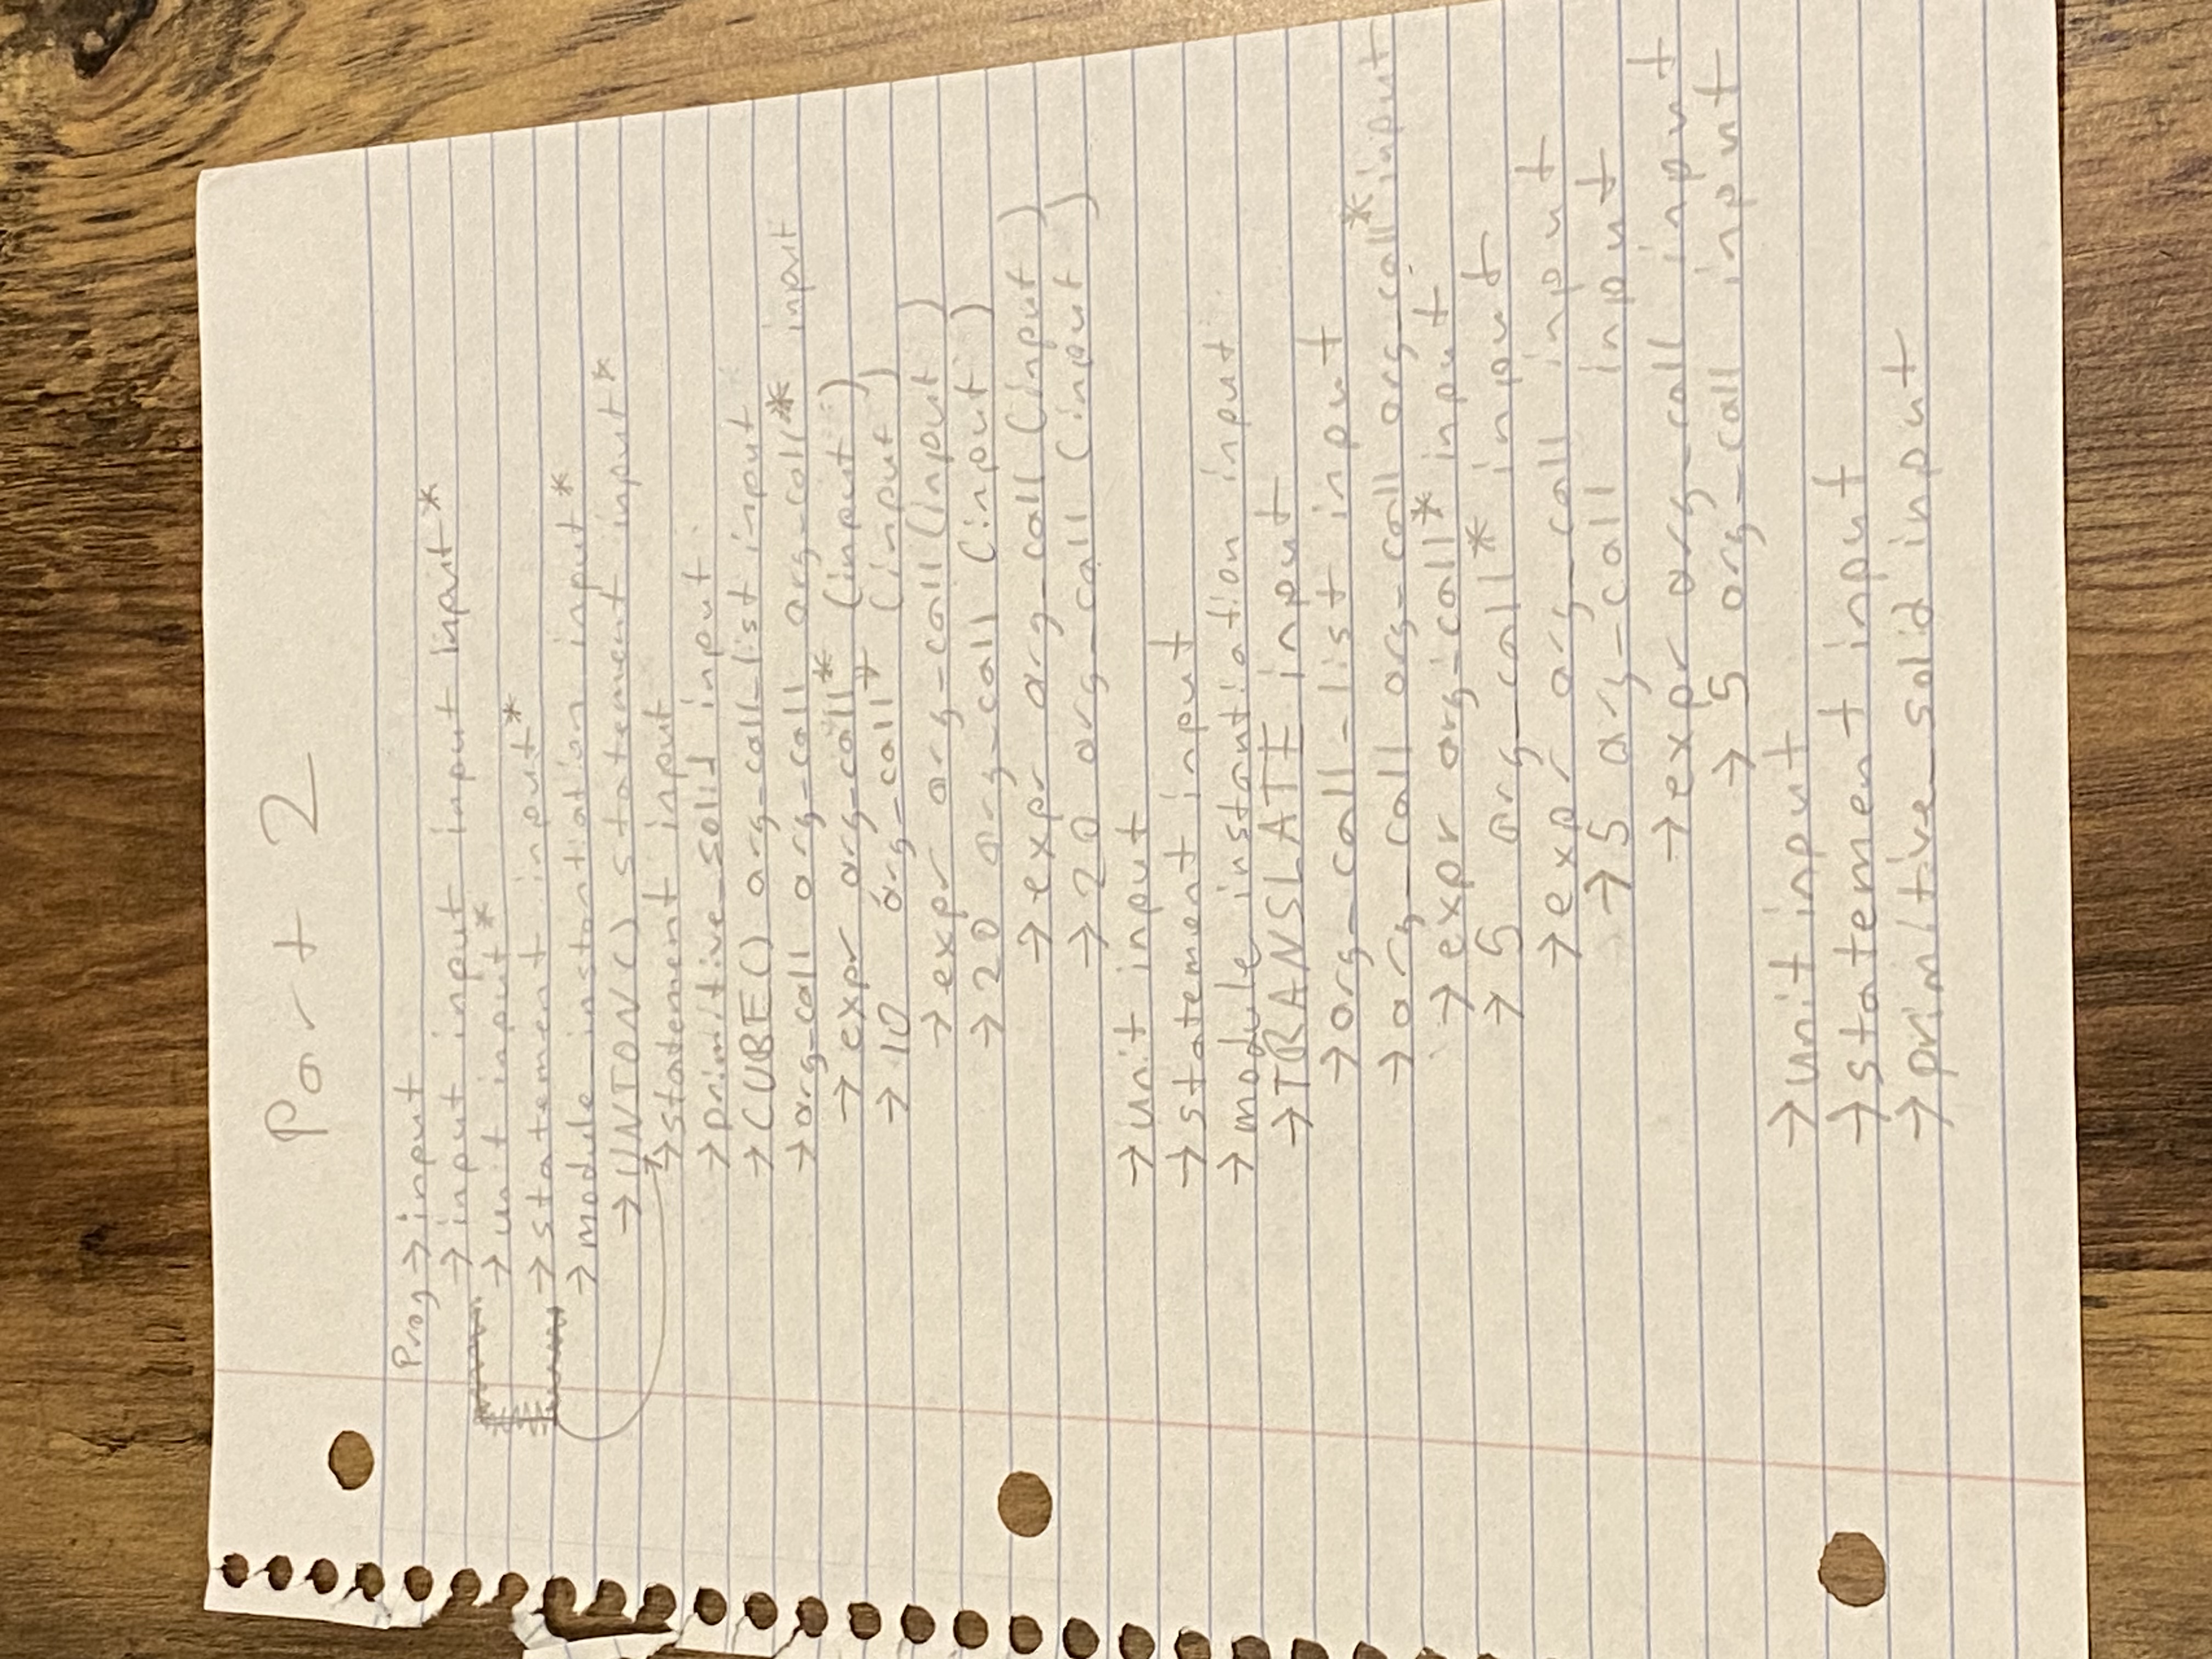 Part 2
Prog → input
→ input input input input*
→ unit input*
→ statement input*
→ module_instantiation input*
→ UNION() statement input*
→ statement input
→ primitive_solid input
→ CUBE() arg-call-list input
→ arg-call arg-call arg-call* input
→ expr arg-call* (input )
→ 10 arg-call* (input )
→ expr arg-call (input )
→ 20 arg-call (input )
→ expr arg-call (input )
→ 20 arg-call (input )
→ unit input
→ statement input
→ module instantiation input
→ TRANSLATE input
→ arg-call-list input
→ arg-call arg-call arg-call* input
→ expr arg-call* input
→ 5 arg-call* input
→ expr arg-call input
→ 5 arg-call input
→ expr arg-call input
→ 5 arg-call input
→ unit input
→ statement input
→ primitive_solid input